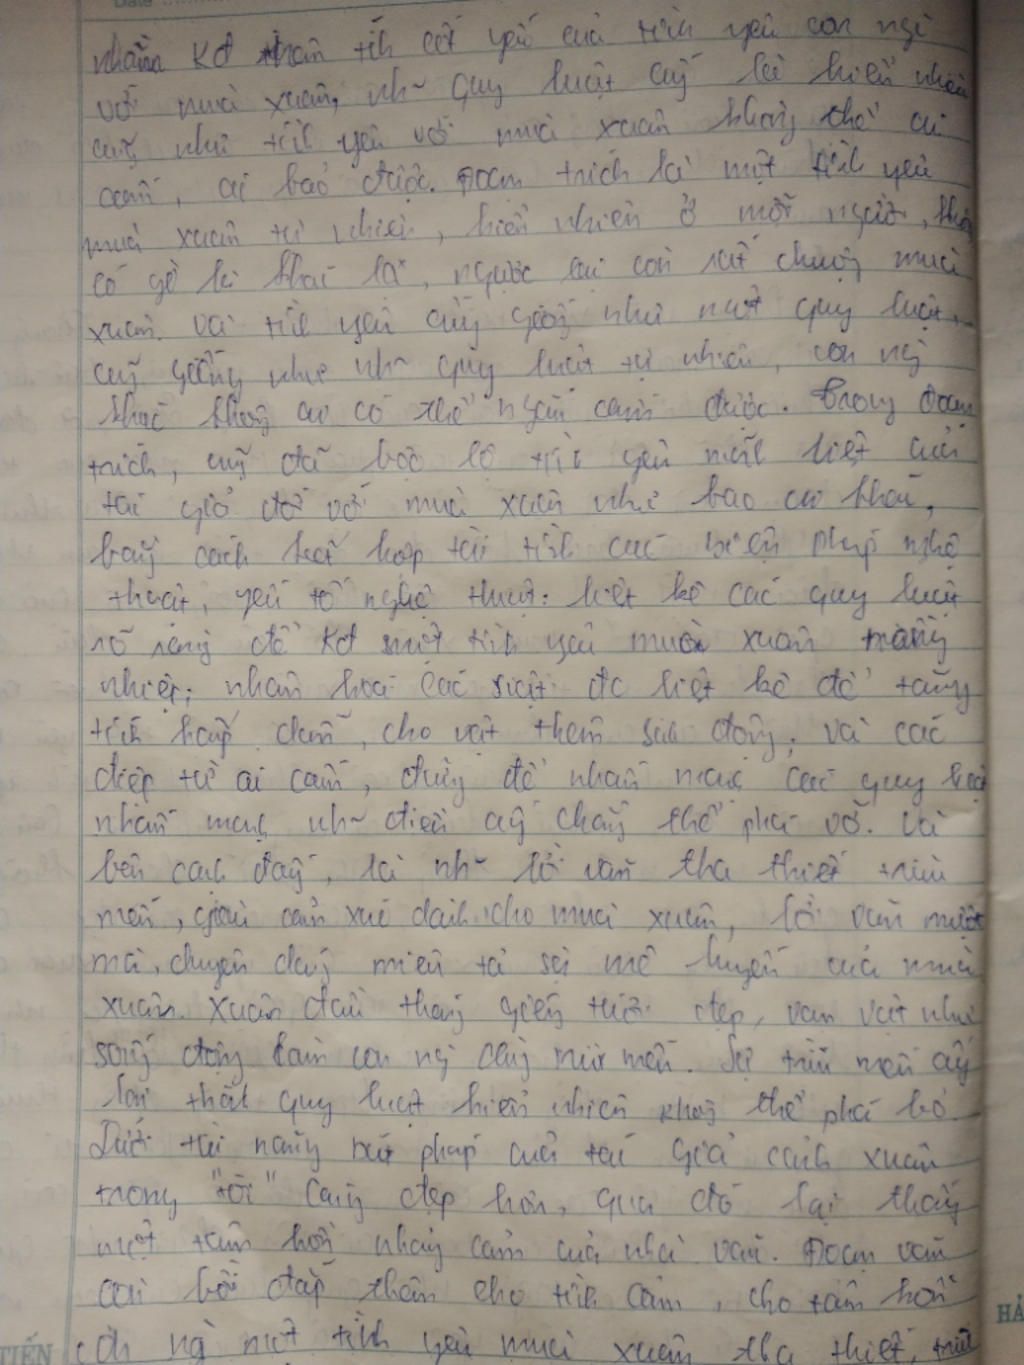 nhằm Kđ tính cốt yếu của tình yêu con ng
với mùa xuân, nh~ quy luật ấy là hiển nhiên
cũng như tình yêu với mùa xuân không thể ai
cấm, ai bảo được. Đoạn trích là một tình yêu
mùa xuân tự nhiên, hiển nhiên ở mỗi người, không
có gì là khác lạ, ngược lại còn rất chuộng mùa
xuân. Và tình yêu cũng giống như một quy luật,
cũng giống như nh~ quy luật tự nhiên, con ng
khác không ai có thể ngăn cấm được. Trong đoạn
trích, cũng đã bộc lộ tình yêu mãnh liệt của
tác giả đối với mùa xuân như bao ai khác,
bằng cách kết hợp tài tình các biện pháp nghệ
thuật, yếu tố nghệ thuật: liệt kê các quy luật
rõ ràng để Kđ một tình yêu mùa xuân nồng
nhiệt; nhân hoá các sự vật đc liệt kê để tăng
tính hấp dẫn, cho vật thêm sinh động; và các
điệp từ ai cấm, đừng để nhấn mạnh các quy luật
nhấn mạnh nh~ điều ấy chẳng thể phá vỡ. Và
bên cạnh đấy, là nh~ lời văn tha thiết trìu
mến, giàu cảm xúc dành cho mùa xuân, lời văn mượt
mà, chuyên dùng miêu tả sự mê luyến của mùa
xuân. Xuân đầu tháng giêng tươi đẹp, vạn vật như
sống động làm con ng cũng trìu mến. Sự trìu mến ấy
lại thật quy luật hiển nhiên không thể phá bỏ.
Dưới tài năng bút pháp của tác giả cảnh xuân
trong "tôi" càng đẹp hơn, qua đó lại thấy
một tâm hồn nhạy cảm của nhà văn. Đoạn văn
còn bồi đắp thêm cho tình cảm, cho tâm hồn
một tình yêu mùa xuân tha thiết, trìu
TIẾN
HẢ